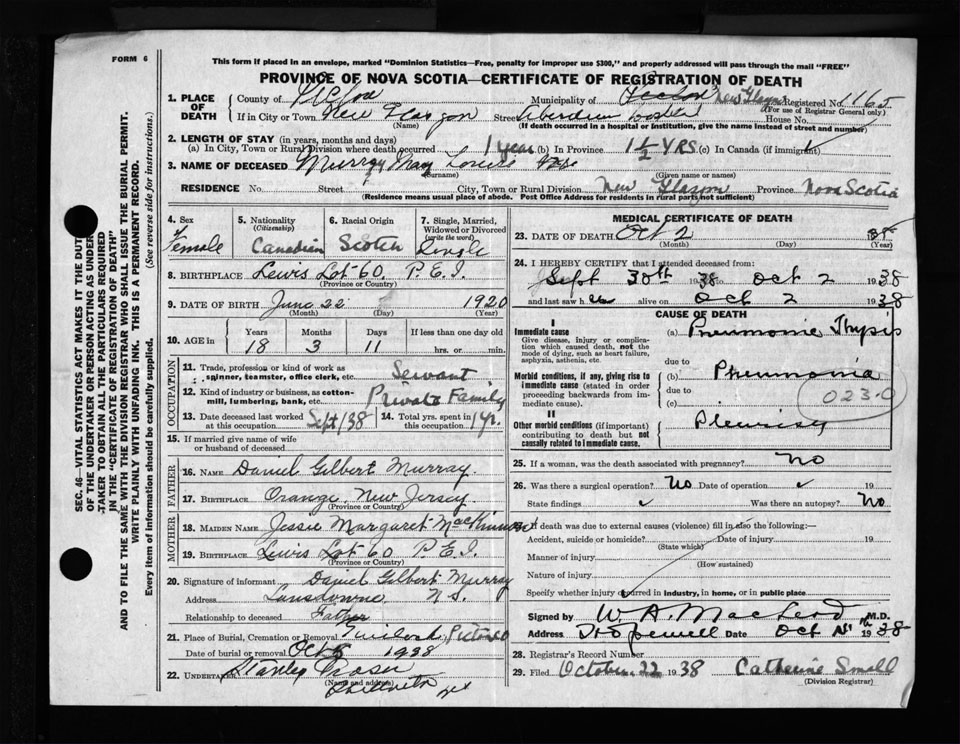 FORM 6
This form if placed in an envelope, marked "Dominion Statistics—Free, penalty for improper use $300," and properly addressed will pass through the mail "FREE"
PROVINCE OF NOVA SCOTIA—CERTIFICATE OF REGISTRATION OF DEATH
SEC. 46—VITAL STATISTICS ACT MAKES IT THE DUTY
OF THE UNDERTAKER OR PERSON ACTING AS UNDER-
TAKER TO OBTAIN ALL THE PARTICULARS REQUIRED
IN THE "CERTIFICATE OF REGISTRATION OF DEATH"
AND TO FILE THE SAME WITH THE DIVISION REGISTRAR WHO SHALL ISSUE THE BURIAL PERMIT.
WRITE PLAINLY WITH UNFADING INK. THIS IS A PERMANENT RECORD.
Every item of information should be carefully supplied. (See reverse side for instructions.)
1. PLACE OF DEATH
County of Pictou Municipality of Pictou New Glasgow Registered No. 1165
(For use of Registrar General only)
If in City or Town New Glasgow Street Aberdeen House No.
(Name) (If death occurred in a hospital or institution, give the name instead of street and number)
2. LENGTH OF STAY (in years, months and days)
(a) In City, Town or Rural Division where death occurred 1 year (b) In Province 1½ YRS (c) In Canada (if immigrant)
3. NAME OF DECEASED Murray May Louise
(Surname) (Given or names)
RESIDENCE No. Street City, Town or Rural Division New Glasgow Province Nova Scotia
(Residence means usual place of abode. Post Office Address for residents in rural parts not sufficient)
4. Sex Female
5. Nationality (Citizenship) Canadian
6. Racial Origin Scotch
7. Single, Married, Widowed or Divorced (write the word) Single
8. BIRTHPLACE Lewis Lot 60, P.E.I.
(Province or Country)
9. DATE OF BIRTH June 22 1920
(Month) (Day) (Year)
10. AGE in Years 18 Months 3 Days 11 If less than one day old hrs. or min.
OCCUPATION
11. Trade, profession or kind of work as spinner, teamster, office clerk, etc. Servant
12. Kind of industry or business, as cotton-mill, lumbering, bank, etc. Private Family
13. Date deceased last worked at this occupation Sept/38 14. Total yrs. spent in this occupation 1 yr.
15. If married give name of wife or husband of deceased
FATHER
16. Name Daniel Gilbert Murray
17. BIRTHPLACE Orange, New Jersey
(Province or Country)
MOTHER
18. MAIDEN NAME Jessie Margaret MacKinnon
19. BIRTHPLACE Lewis Lot 60 P.E.I.
(Province or Country)
20. Signature of informant Daniel Gilbert Murray
Address Lansdowne N.S.
Relationship to deceased Father
21. Place of Burial, Cremation or Removal Pictou Co
Date of burial or removal Oct 5 1938
22. UNDERTAKER Stanley Fraser
(Name and address)
MEDICAL CERTIFICATE OF DEATH
23. DATE OF DEATH Oct 2 38
(Month) (Day) (Year)
24. I HEREBY CERTIFY that I attended deceased from:
Sept 30th 1938 to Oct 2 1938
and last saw h alive on Oct 2 1938
CAUSE OF DEATH
I
Immediate cause (a) Pneumonic Thysis
Give disease, injury or complication which caused death, not the mode of dying, such as heart failure, asphyxia, asthenia, etc.
due to
Morbid conditions, if any, giving rise to immediate cause (stated in order proceeding backwards from immediate cause). (b) Pneumonia
due to
(c) 023.0
II
Other morbid conditions (if important) contributing to death but not causally related to immediate cause. Pleurisy
25. If a woman, was the death associated with pregnancy? No
26. Was there a surgical operation? No Date of operation 19
State findings Was there an autopsy? No
27. If death was due to external causes (violence) fill in also the following:
Accident, suicide or homicide? Date of injury 19
(State which)
Manner of injury
(How sustained)
Nature of injury
Specify whether injury occurred in industry, in home, or in public place
Signed by W. A. MacLeod M.D.
Address Hopewell Date Oct 1938
28. Registrar's Record Number
29. Filed October 22 1938 Catherine Small
(Division Registrar)